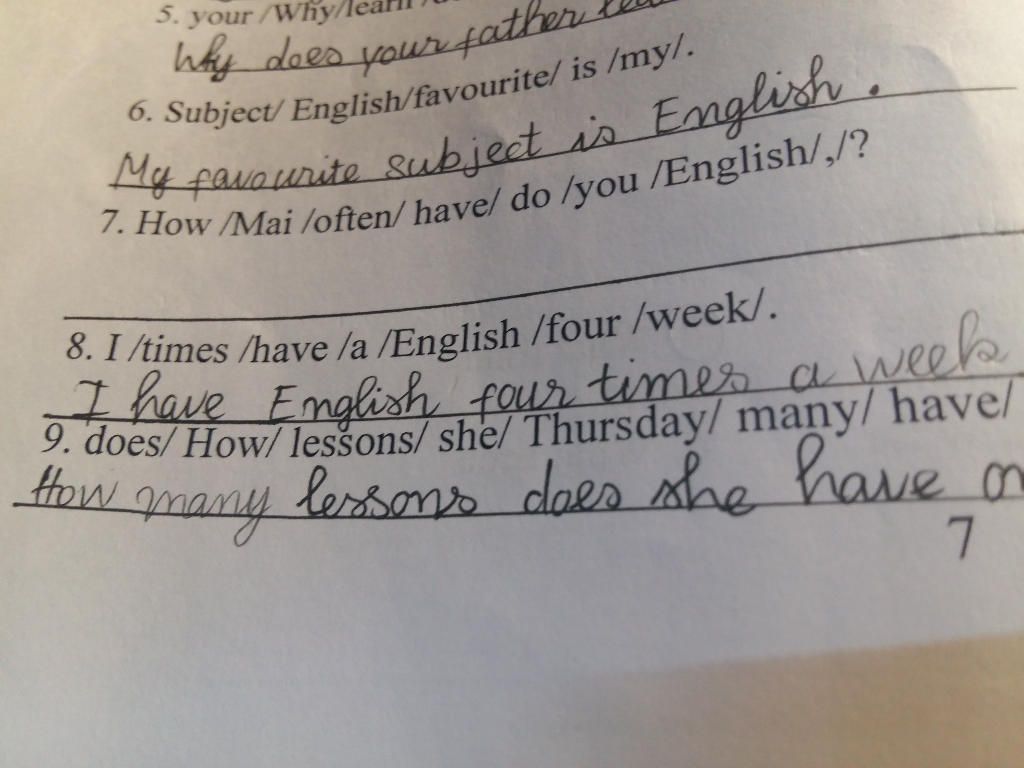 5. your /Why/learn
Why does your father
6. Subject/ English/favourite/ is /my/.
My favourite subject is English.
7. How /Mai /often/ have/ do /you /English/,/?
8. I /times /have /a /English /four /week/.
I have English four times a week
9. does/ How/ lessons/ she/ Thursday/ many/ have/
How many lessons does she have
7